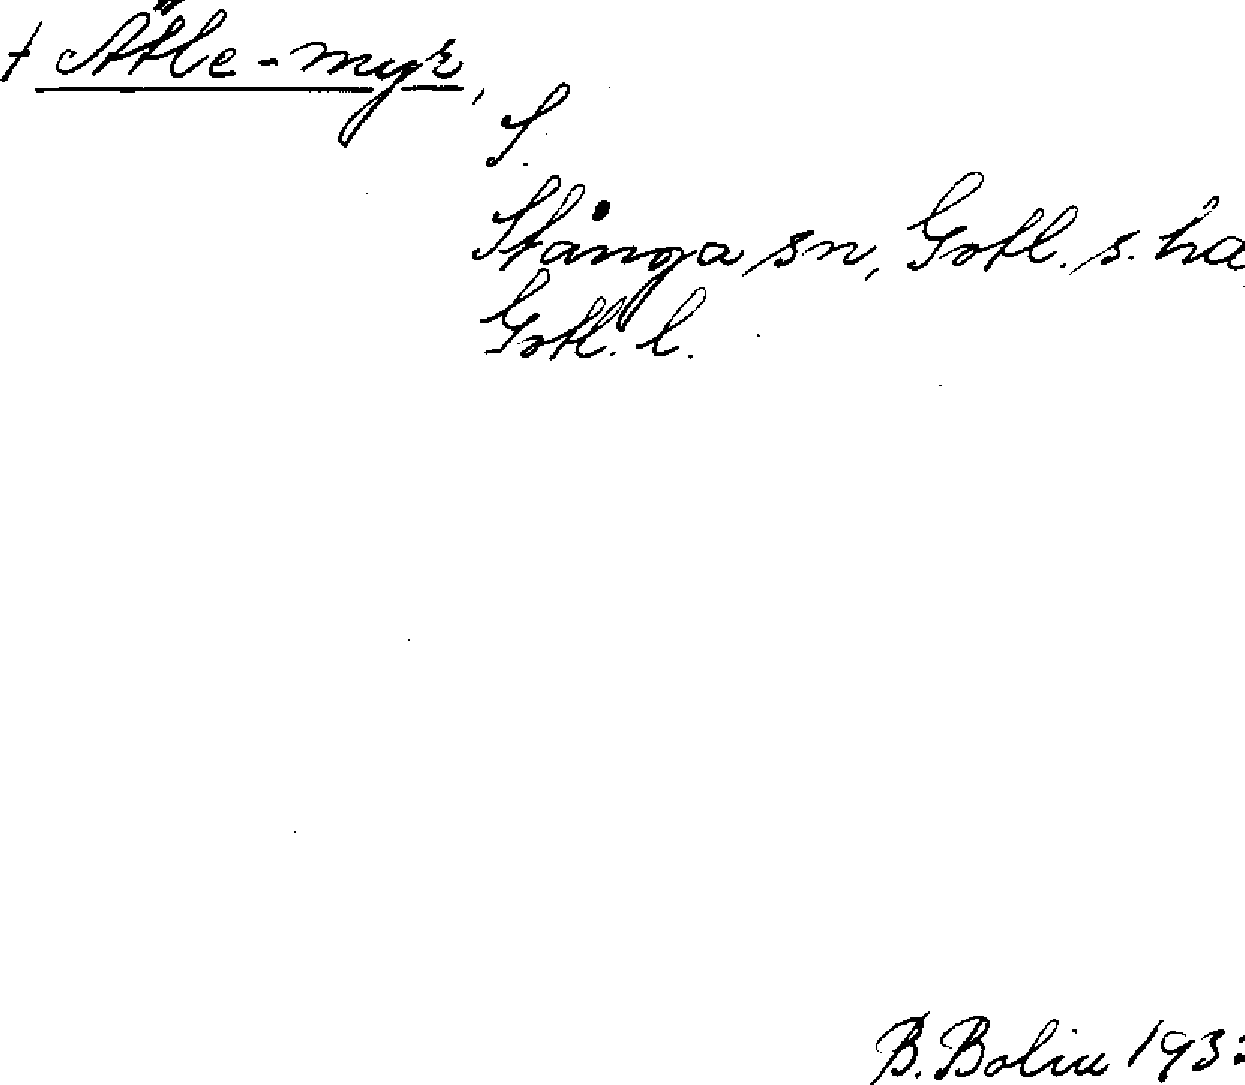 † Ätle-myr,
S.
Stånga sn, Gotl. s. hd
Gotl. l.
B. Bolin 193